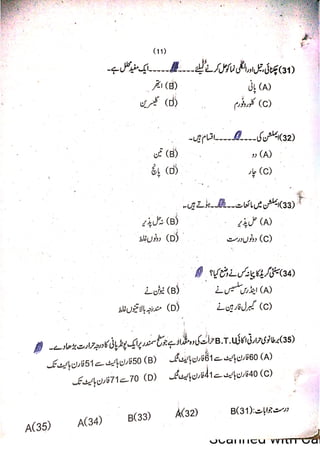 (11)
(31) چکنائی، تیل اور الکلی نما کو حل کرنے کیلئے ---------- ایک مفید محلل ہے۔
(A) پانی (B) ایتھر
(C) کلوروفورم (D) گلیسرین
(32) ایملشن کی ---------- اقسام ہیں۔
(A) دو (B) تین
(C) چار (D) پانچ
(33) ایملشن میں مائعات ---------- ہوتے ہیں۔
(A) حل پذیر (B) نا حل پذیر
(C) دونوں درست (D) دونوں غلط
(34) سینٹی گریڈ کا پیمانہ کس نے وضع کیا؟
(A) اینڈرس سیلسیس نے (B) نیوٹن نے
(C) گیبریل فارن ہیٹ نے (D) مندرجہ بالا تینوں غلط
(35) برطانوی حرارتی اکائی B.T.U حرارت کی وہ مقدار ہے جو سطح سمندر پر ایک پونڈ پانی کا درجہ حرارت بڑھا دے۔
(A) 60 فارن ہائیٹ سے 61 فارن ہائیٹ تک (B) 50 فارن ہائیٹ سے 51 فارن ہائیٹ تک
(C) 40 فارن ہائیٹ سے 41 فارن ہائیٹ تک (D) 70 سے 71 فارن ہائیٹ تک
درست جوابات: B(31) A(32) B(33) A(34) A(35)
Scanned with Ca